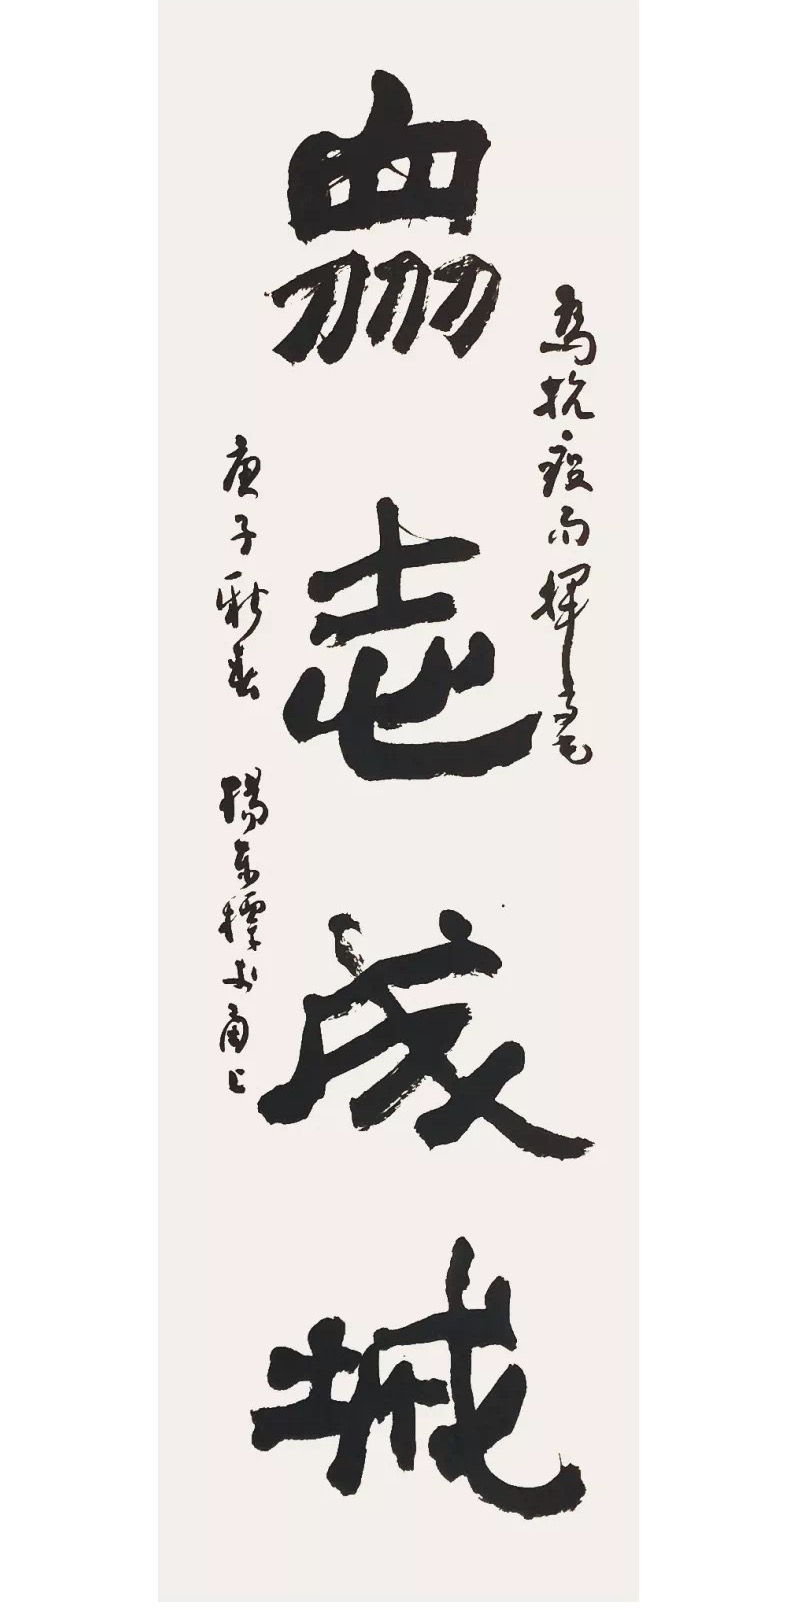 衆志成城
為抗疫而揮毫
庚子新春 楊東標於甬上